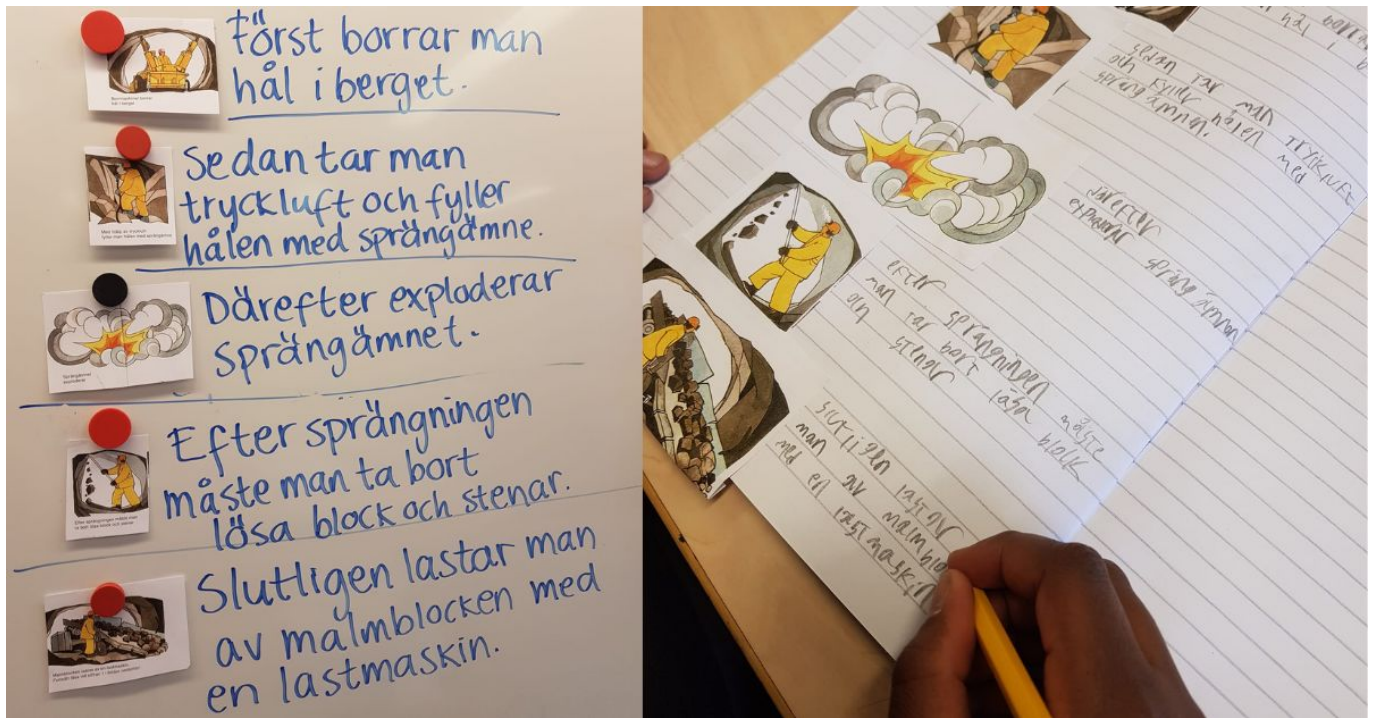 Först borrar man
hål i berget.
Sedan tar man
tryckluft och fyller
hålen med sprängämne.
Därefter exploderar
sprängämnet.
Efter sprängningen
måste man ta bort
lösa block och stenar.
Slutligen lastar man
av malmblocken med
en lastmaskin.
hål i
sedan tar man tryckluft
och fyller hålen med
sprängämnen.
därefter sprängämnen
efter sprängningen måste
man tar bort låsa block
och stenar
slutligen lastar
man av malmblo
med en lastmaskin